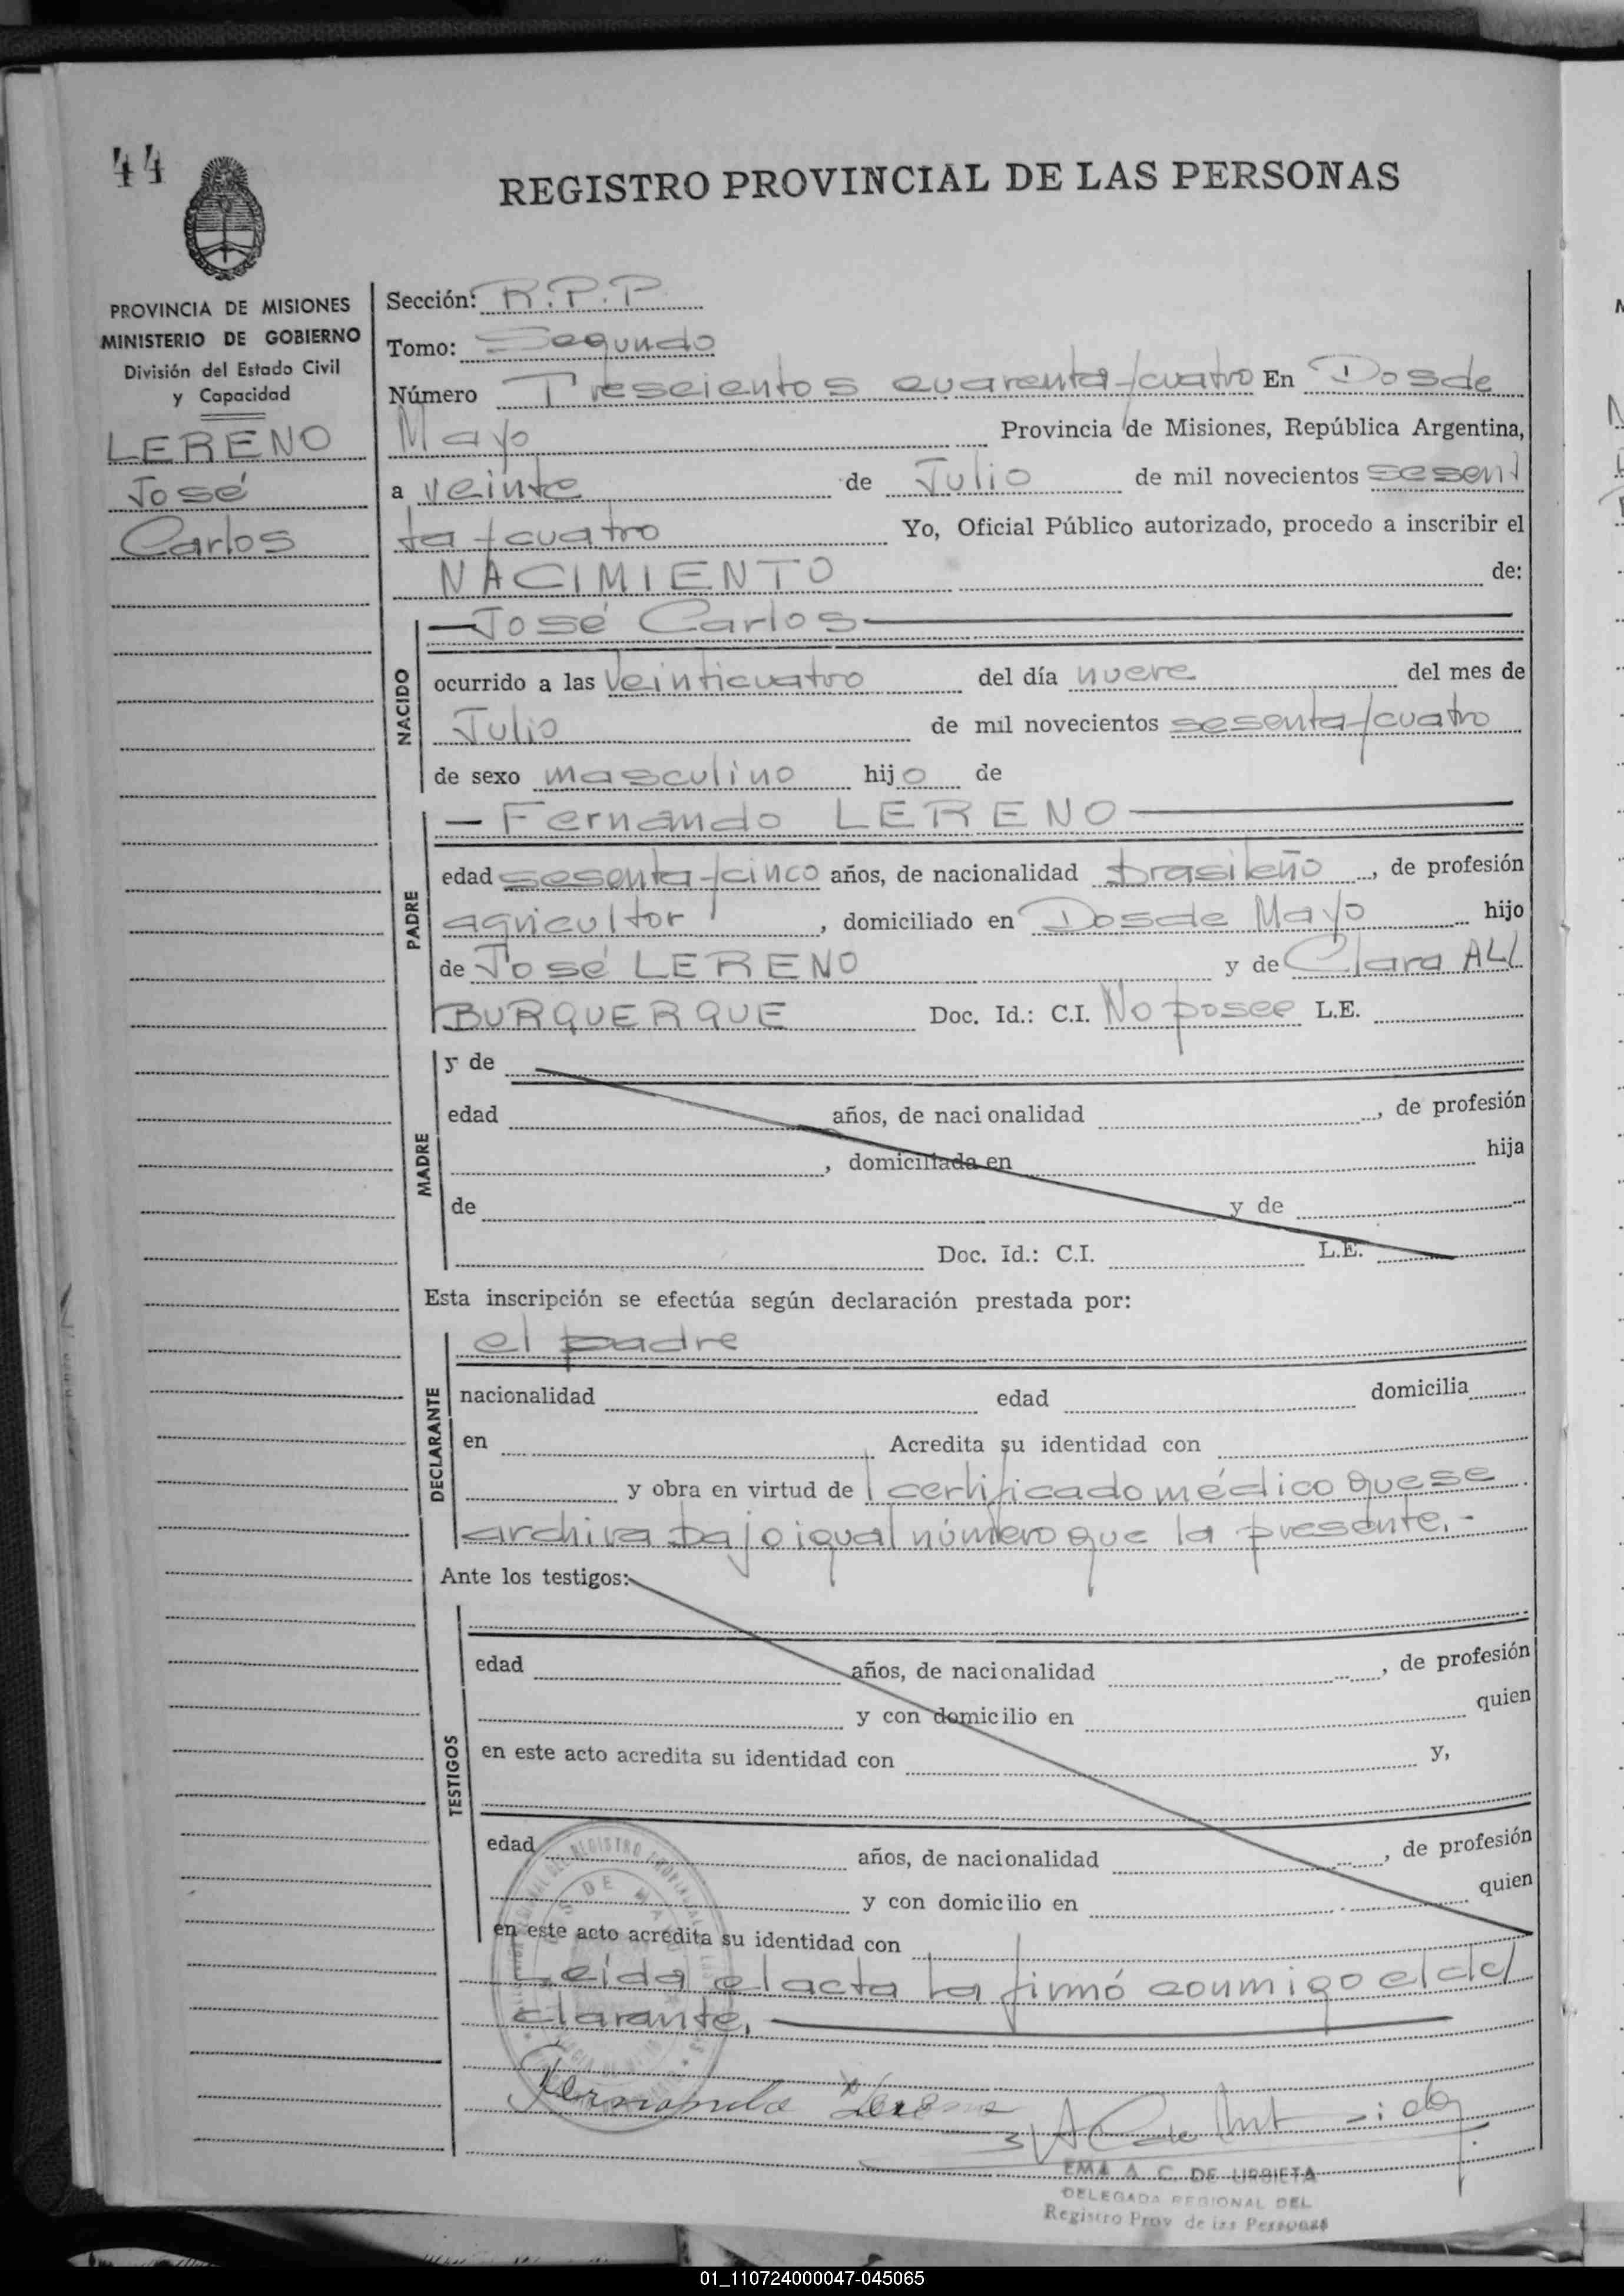 44
REGISTRO PROVINCIAL DE LAS PERSONAS
PROVINCIA DE MISIONES
MINISTERIO DE GOBIERNO
División del Estado Civil
y Capacidad
LERENO
José
Carlos
Sección: R.P.P.
Tomo: Segundo
Número Trescientos cuarenta y cuatro En Dos de
Mayo Provincia de Misiones, República Argentina,
a veinte de Julio de mil novecientos sesen
ta y cuatro Yo, Oficial Público autorizado, procedo a inscribir el
NACIMIENTO de:
NACIDO
— José Carlos —
ocurrido a las veinticuatro del día nueve del mes de
Julio de mil novecientos sesenta y cuatro
de sexo masculino hijo de
PADRE
— Fernando LERENO —
edad sesenta y cinco años, de nacionalidad brasileño, de profesión
agricultor, domiciliado en Dos de Mayo hijo
de José LERENO y de Clara AL
BURQUERQUE Doc. Id.: C.I. No posee L.E.
MADRE
y de
edad años, de nacionalidad , de profesión
, domiciliada en hija
de y de
Doc. Id.: C.I. L.E.
Esta inscripción se efectúa según declaración prestada por:
DECLARANTE
el padre
nacionalidad edad domicilia
en Acredita su identidad con
y obra en virtud de certificado médico que se
archiva bajo igual número que la presente.-
Ante los testigos:
TESTIGOS
edad años, de nacionalidad , de profesión
y con domicilio en quien
en este acto acredita su identidad con y,
edad años, de nacionalidad , de profesión
y con domicilio en quien
en este acto acredita su identidad con
Leída el acta la firmó conmigo el de
clarante. —
Fernando Lereno
EMA A. C. DE URBIETA
DELEGADA REGIONAL DEL
Registro Prov de las Personas
01_110724000047-045065